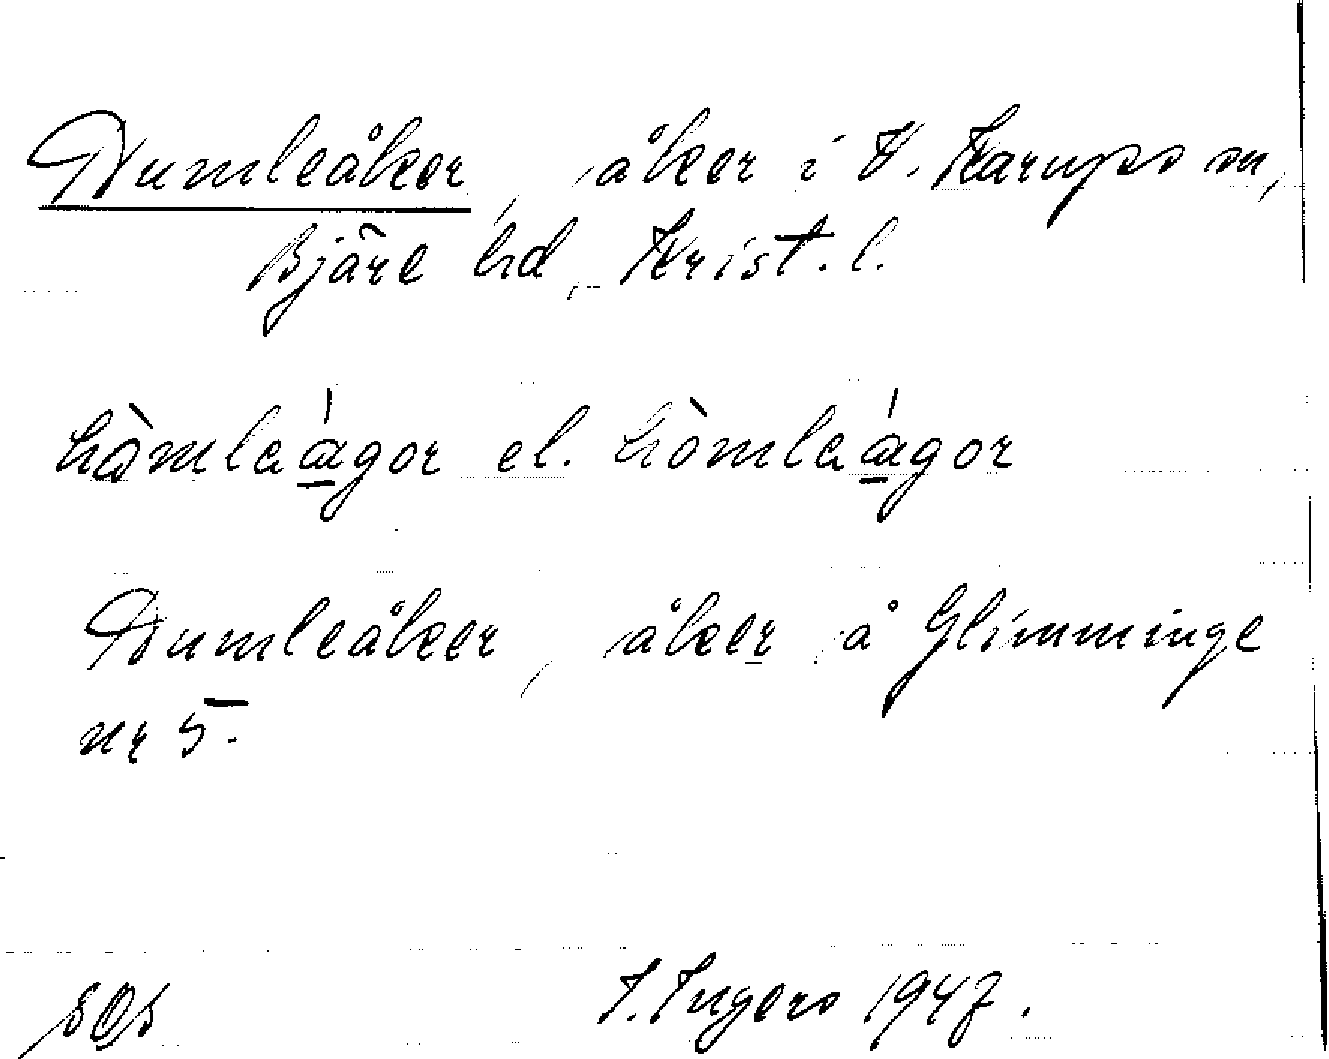 Humleåker, åker i V. Karups sn,
Bjäre hd, Krist. l.
hòmleágor el. hòmleágor
Humleåker, åker å Glimminge
nr 5.
I. Ingers 1947.